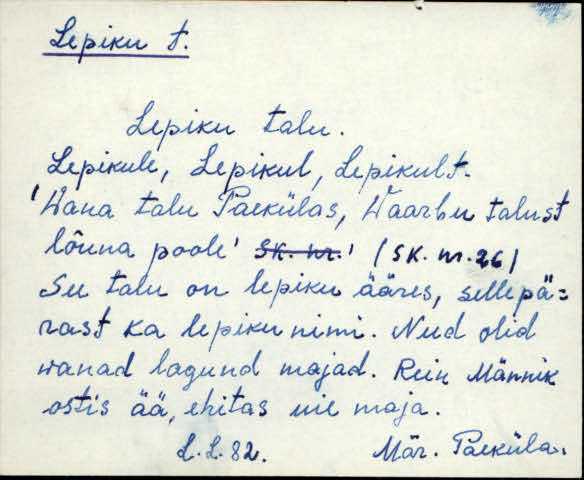 Lepiku t.
Lepiku talu.
Lepikule, Lepikul, Lepikult.
'Wana talu Paekülas, Waarbu talust
lõuna poole' SK. nr.' (SK. nr. 26)
Su talu on lepiku ääres, sellepä=
rast ka lepiku nimi. Nud olid
wanad lagund majad. Rein Männik
ostis ää, ehitas uie maja.
L. L. 82. Mär. Paeküla.